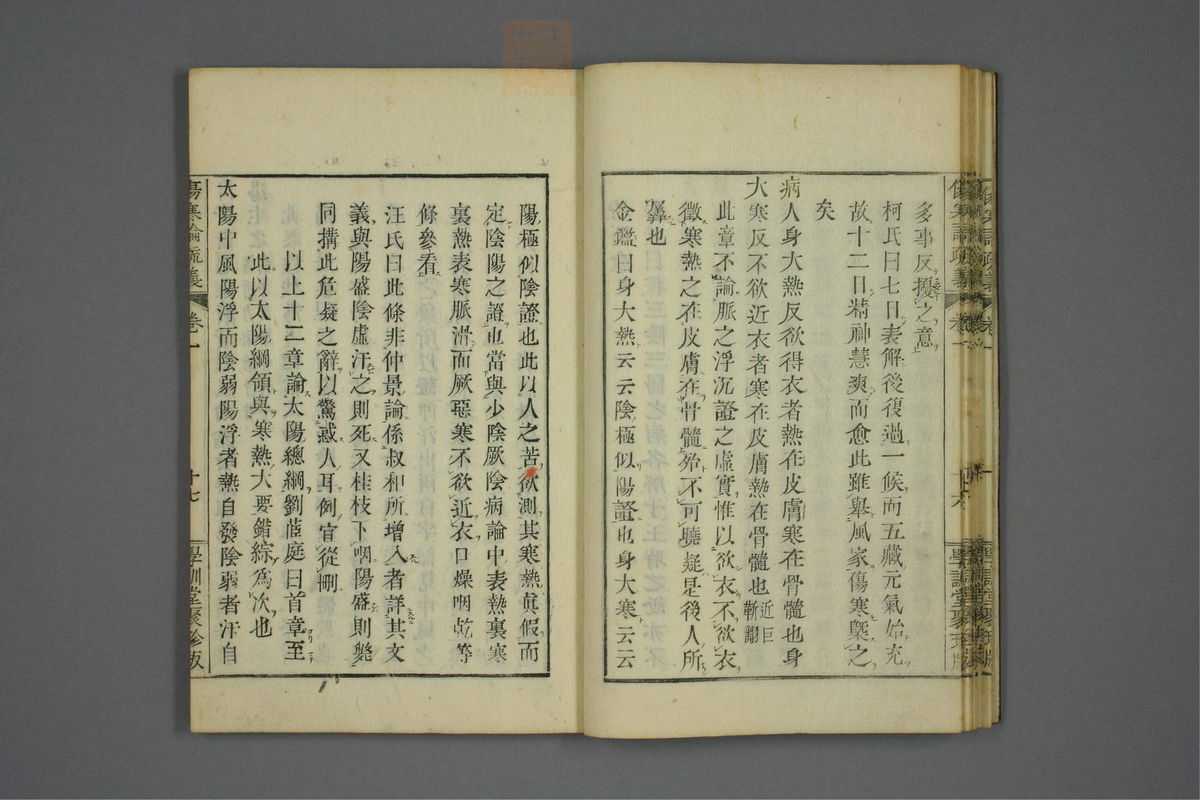 多事反擾之意
柯氏曰七日表解後復過一候而五藏元氣始充
故十二日精神慧爽而愈此雖舉風家傷寒槩之
矣
病人身大熱反欲得衣者熱在皮膚寒在骨髓也身
大寒反不欲近衣者寒在皮膚熱在骨髓也近巨靳翻
此章不論脈之浮沉證之虛實惟以欲衣不欲衣
徵寒熱之在皮膚在骨髓殆不可曉疑是後人所
羼也
金鑑曰身大熱云云陰極似陽證也身大寒云云
十六
陽極似陰證也此以人之苦欲測其寒熱眞假而
定陰陽之證也當與少陰厥陰病論中表熱裏寒
裏熱表寒脈滑而厥惡寒不欲近衣口燥咽乾等
條參看
汪氏曰此條非仲景論係叔和所增入者詳其文
義與陽盛陰虛汗之則死又桂枝下咽陽盛則斃
同搆此危疑之辭以驚惑人耳例宜從刪
以上十二章論太陽總綱劉茝庭曰首章至
此以太陽綱領與寒熱大要錯綜爲次也
太陽中風陽浮而陰弱陽浮者熱自發陰弱者汗自
傷寒論疏義 卷一 十七 學訓堂聚珍版